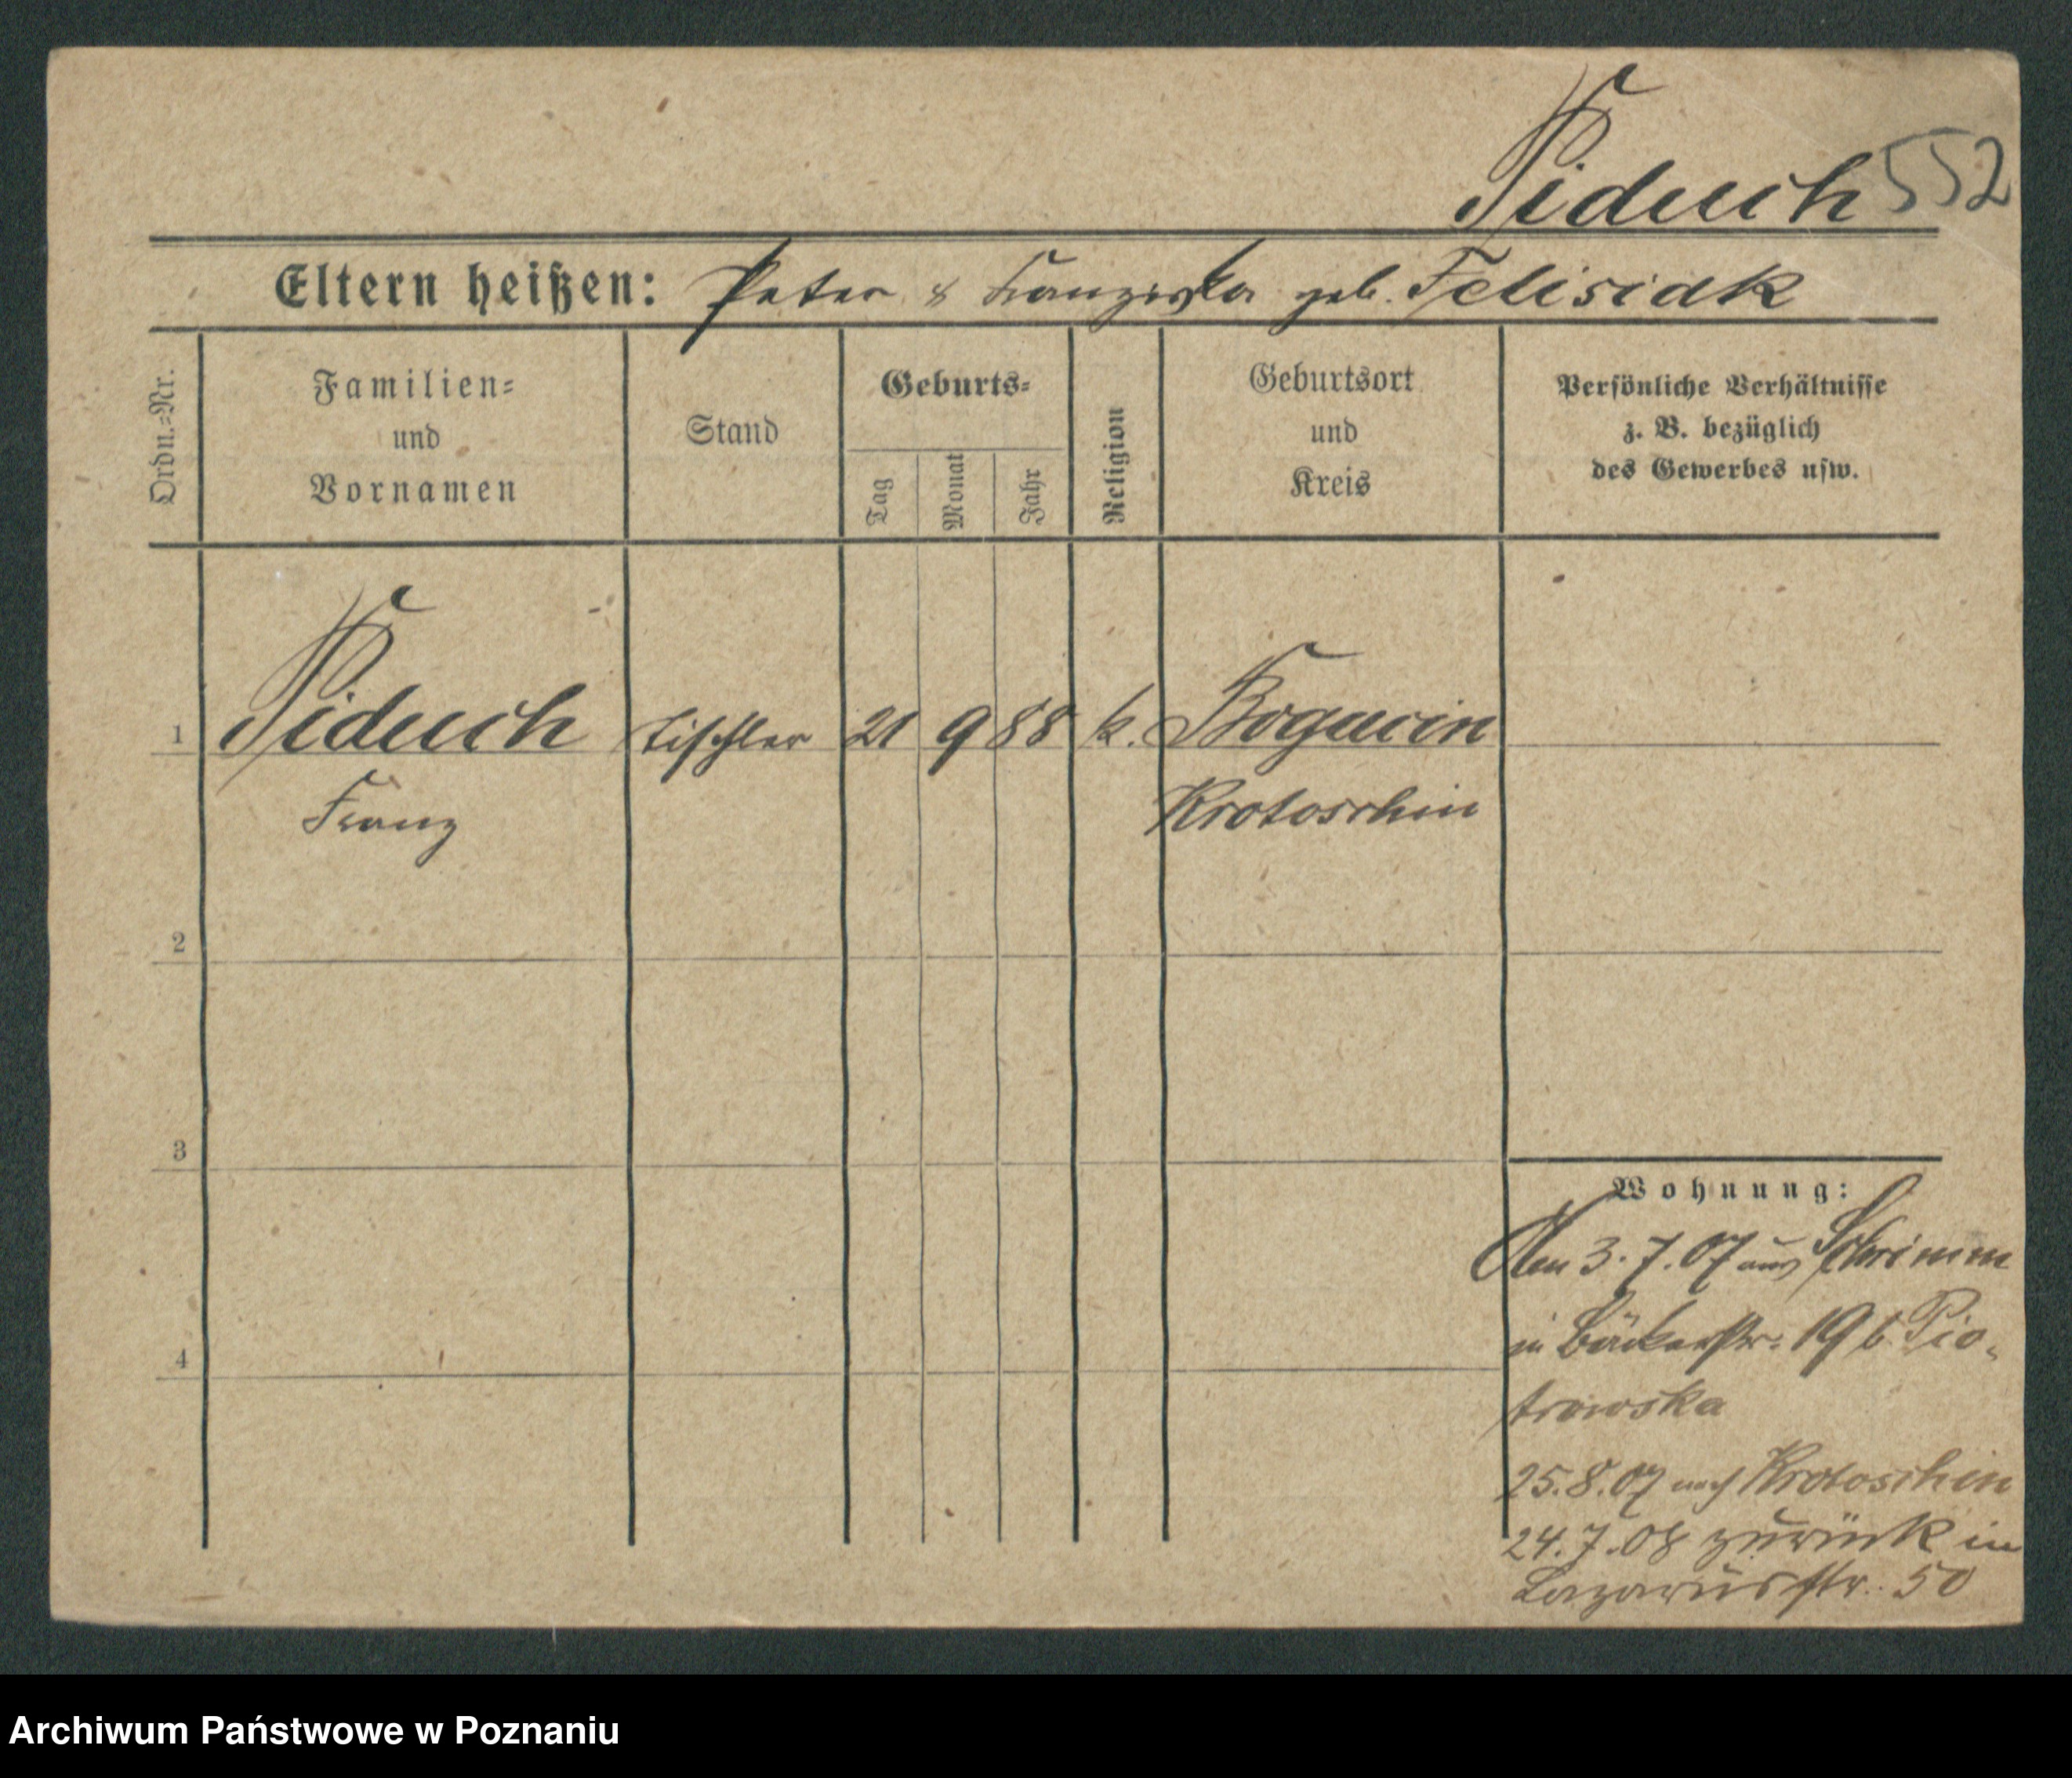 Piduch 552
Eltern heißen: Peter & Franziska geb. Felisiak
Ordn.=Nr.
Familien=
und
Vornamen
Stand
Geburts=
Tag
Monat
Jahr
Religion
Geburtsort
und
Kreis
Persönliche Verhältnisse
z. B. bezüglich
des Gewerbes usw.
1 Piduch Tischler 21 9 88 k. Bogucin
Franz Krotoschin
2
3
4
Wohnung:
Den 3.7.07 aus Schrimm
in Bäckerstr. 19 b. Pio-
trowska
25.8.07 nach Krotoschin
24.7.08 zurück in
Lazarusstr. 50
Archiwum Państwowe w Poznaniu